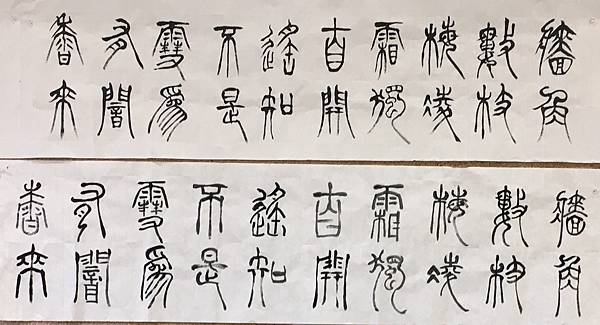 牆角
數枝
梅凌
霜獨
自開
遙知
不是
雪為
有闇
香來
牆角
數枝
梅凌
霜獨
自開
遙知
不是
雪為
有闇
香來